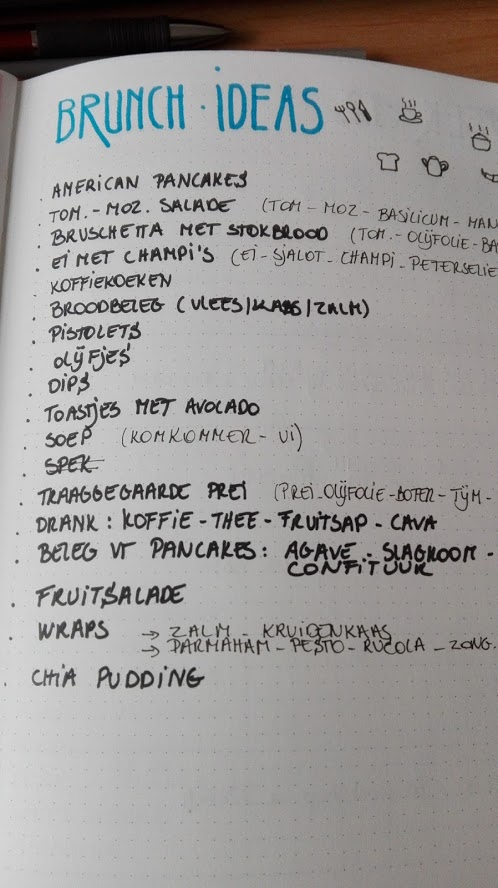 BRUNCH · IDEAS
. AMERICAN PANCAKES
. TOM.-MOZ. SALADE (TOM - MOZ - BASILICUM - MAN
. BRUSCHETTA MET STOKBROOD (TOM. - OLIJFOLIE - BA
. EI MET CHAMPI'S (EI - SJALOT - CHAMPI - PETERSELIE
. KOFFIEKOEKEN
. BROODBELEG (VLEES/KAAS/ZALM)
. PISTOLETS
. OLIJFJES
. DIPS
. TOASTJES MET AVOLADO
. SOEP (KOMKOMMER - UI)
. SPEK
. TRAAGGEGAARDE PREI (PREI - OLIJFOLIE - BOTER - TIJM -
. DRANK : KOFFIE - THEE - FRUITSAP - CAVA
. BELEG VT PANCAKES : AGAVE - SLAGROOM -
CONFITUUR
. FRUITSALADE
. WRAPS → ZALM - KRUIDENKAAS
→ PARMAHAM - PESTO - RUCOLA - ZONG.
. CHIA PUDDING